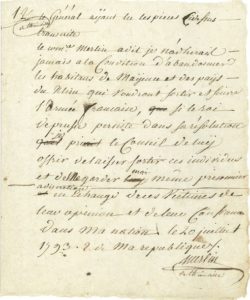 le Conseil ayant lu les pieces
transmises
le comre Merlin a dit je n'adhererai
jamais a la Condition d'abandonner
les habitans de Mayence et des pays
du Rhin, qui voudront sortir et suivre
l'armée francaise, que si le Roi
de prusse persiste dans sa résolution
le Conseil de luy
offrir de laisser sortir ces individus
et de me garder moi même prisonnier
en Echange de ces Victimes de
leur opinion et de leur Confiance
dans Ma nation. le 20 juillet
1793. 2. de Ma republique
Merlin